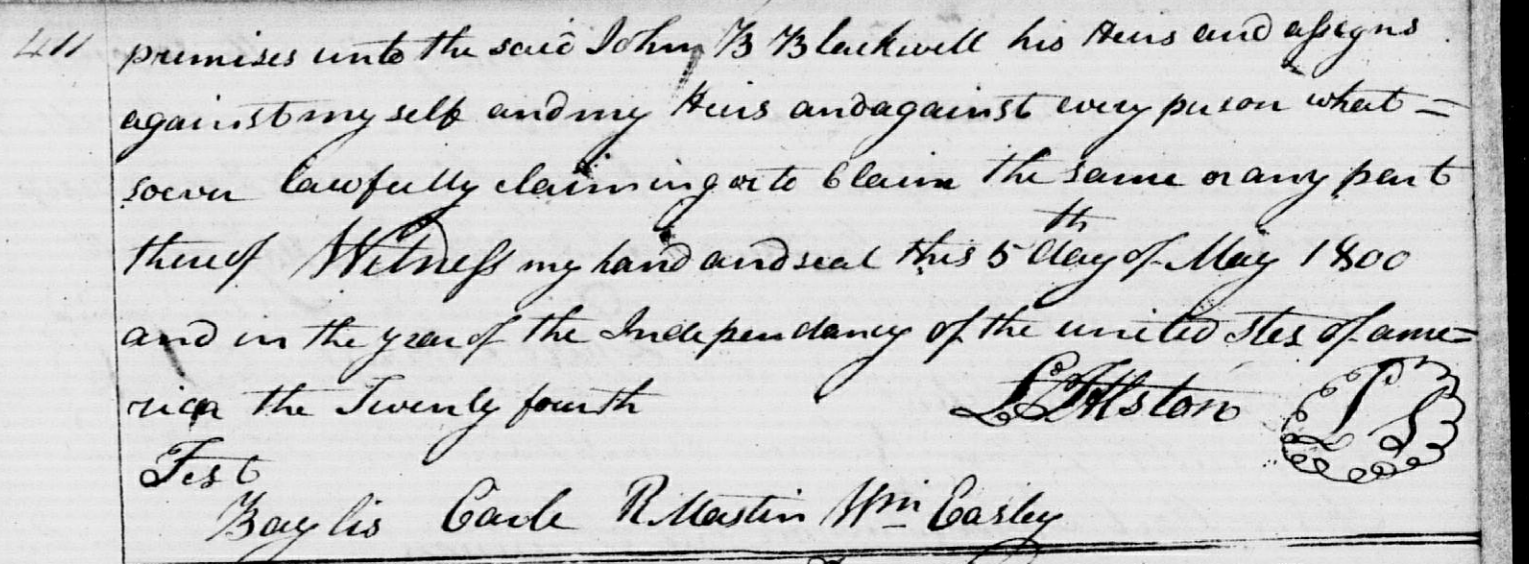 411 premises unto the said John B Blackwell his Heirs and assigns
against my self and my Heirs and against every person what=
soever lawfully claiming or to Claim the same or any part
thereof Witness my hand and seal this 5th day of May 1800
and in the year of the Independancy of the united Stes of ame=
rica the Twenty fourth L Allston LS
Test
Baylis Earle R Mastin Wm Easley